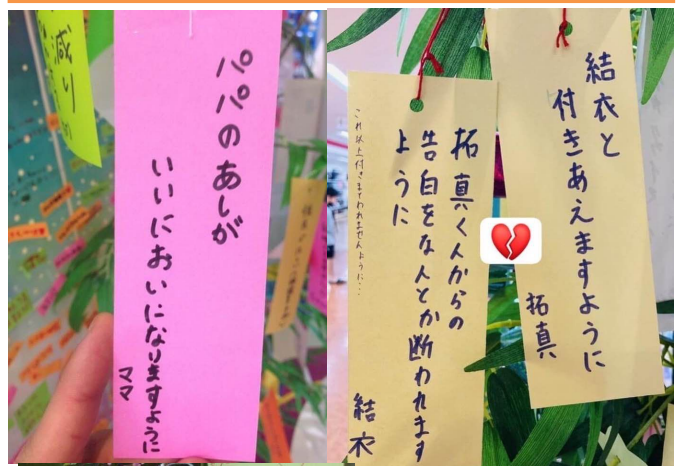 減り
パパのあしが
いいにおいになりますように
ママ
結衣と
付きあえますように
拓真
拓真くんからの
告白をなんとか断われます
ように
これ以上付きまとわれませんように…
結衣